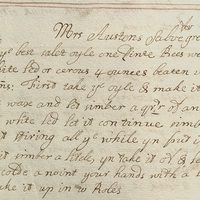 Mrs Austons Salve gre
ye best salot oyle one pinte Bees w
hite led or cerous 4 ounces beaten i
ns: First take ye oyle & make it
wax and let simber a qr of an
white led let it continue simb
it stiring all ye while yn put i
it simber a litle, yn take it of &
coole anoint your hands with a l
ake it up in to Roles